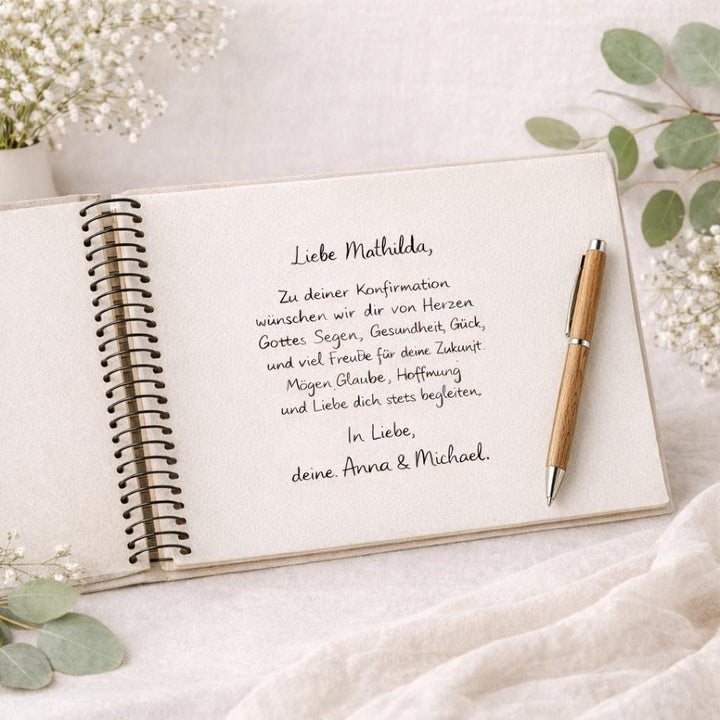 Liebe Mathilda,
Zu deiner Konfirmation
wünschen wir dir von Herzen
Gottes Segen, Gesundheit, Gück,
und viel Freude für deine Zukunft.
Mögen Glaube, Hoffmung
und Liebe dich stets begleiten.
In Liebe,
deine. Anna & Michael.